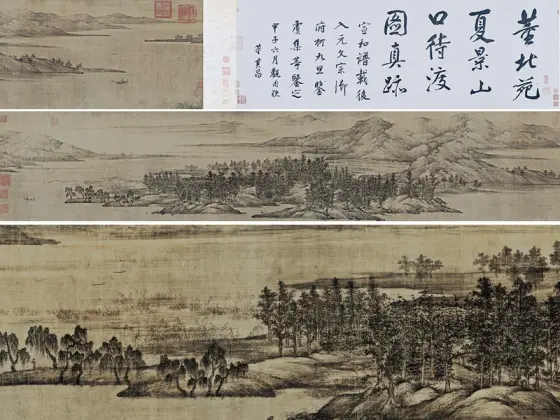 董北苑
夏景山
口待渡
圖真跡
宣和譜載後
入元文宗御
府柯九思
虞集等鑒定
甲子六月觀因
董其昌